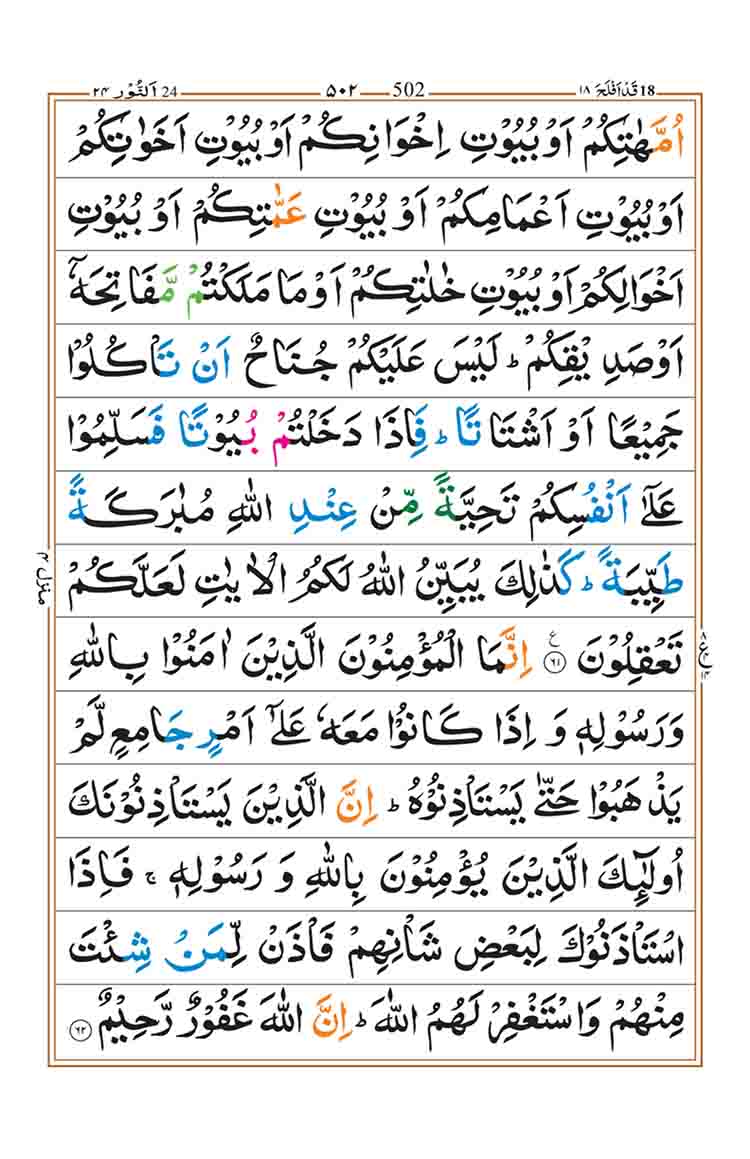 18 قَدْ اَفْلَحَ ١٨ 502 ٥٠٢ 24 اَلنُّوْر ٢٤
اُمَّهٰتِكُمْ اَوْ بُيُوْتِ اِخْوَانِكُمْ اَوْ بُيُوْتِ اَخَوٰتِكُمْ
اَوْ بُيُوْتِ اَعْمَامِكُمْ اَوْ بُيُوْتِ عَمّٰتِكُمْ اَوْ بُيُوْتِ
اَخْوَالِكُمْ اَوْ بُيُوْتِ خٰلٰتِكُمْ اَوْ مَا مَلَكْتُمْ مَّفَاتِحَهٗۤ
اَوْ صَدِيْقِكُمْ ؕ لَيْسَ عَلَيْكُمْ جُنَاحٌ اَنْ تَاْكُلُوْا
جَمِيْعًا اَوْ اَشْتَاتًا ؕ فَاِذَا دَخَلْتُمْ بُيُوْتًا فَسَلِّمُوْا
عَلٰۤى اَنْفُسِكُمْ تَحِيَّةً مِّنْ عِنْدِ اللّٰهِ مُبٰرَكَةً
طَيِّبَةً ؕ كَذٰلِكَ يُبَيِّنُ اللّٰهُ لَكُمُ الْاٰيٰتِ لَعَلَّكُمْ
منزل ٤
تَعْقِلُوْنَ ۠ ﴿٦١﴾ اِنَّمَا الْمُؤْمِنُوْنَ الَّذِيْنَ اٰمَنُوْا بِاللّٰهِ
وَرَسُوْلِهٖ وَ اِذَا كَانُوْا مَعَهٗ عَلٰۤى اَمْرٍ جَامِعٍ لَّمْ
يَذْهَبُوْا حَتّٰى يَسْتَاْذِنُوْهُ ؕ اِنَّ الَّذِيْنَ يَسْتَاْذِنُوْنَكَ
اُولٰٓئِكَ الَّذِيْنَ يُؤْمِنُوْنَ بِاللّٰهِ وَ رَسُوْلِهٖ ۚ فَاِذَا
اسْتَاْذَنُوْكَ لِبَعْضِ شَاْنِهِمْ فَاْذَنْ لِّمَنْ شِئْتَ
مِنْهُمْ وَاسْتَغْفِرْ لَهُمُ اللّٰهَ ؕ اِنَّ اللّٰهَ غَفُوْرٌ رَّحِيْمٌ ﴿٦٢﴾